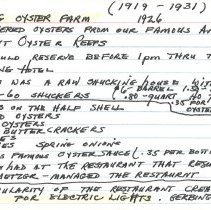 (1919 - 1931)
G OYSTER FARM 1926
ERED OYSTERS FROM OUR FAMOUS A
T OYSTER REEFS
OULD RESERVE BEFORE 1PM THRU T
NG HOTEL
WAS A RAW SHUCKING HOUSE WIT
-60 SHUCKERS
BARREL
.80 - QUART
.35 FOR
S ON THE HALF SHELL
D OYSTERS
OYSTERS
BUTTER CRACKERS
ES
ES SPRING ONIONS
S FAMOUS OYSTER SAUCE (.35 PER BOTT
HAD AT THE RESTAURANT THAT RESU
TZER - MANAGED THE RESTAURANT
ULARITY OF THE RESTAURANT CREA
FOR ELECTRIC LIGHTS. GERBING